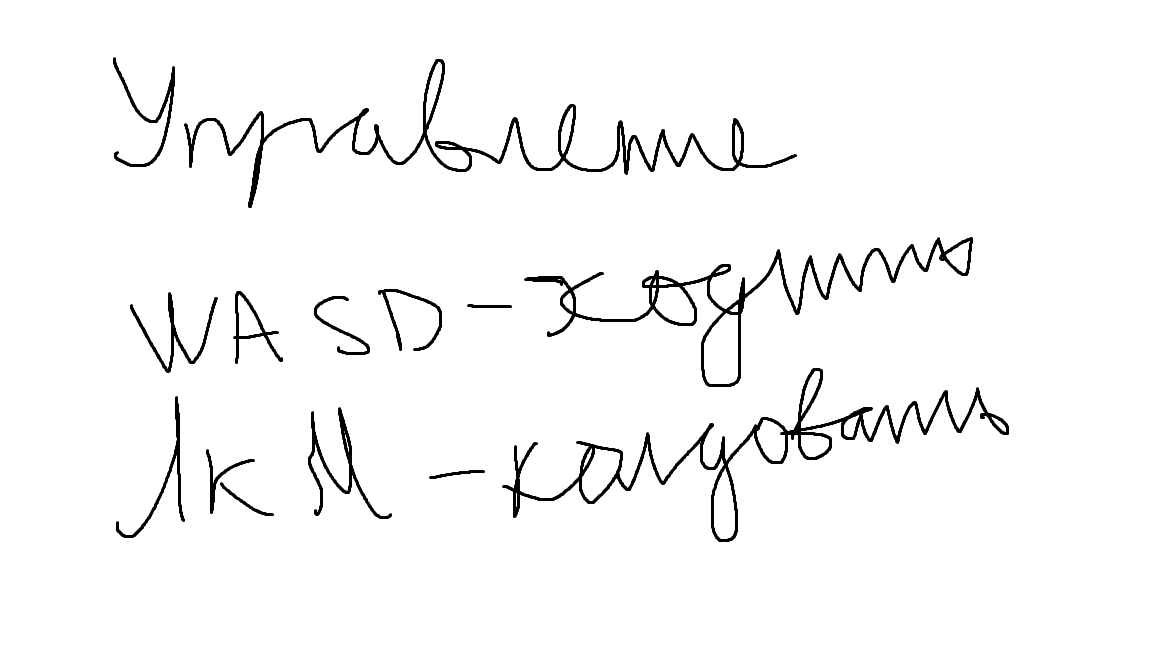 Управление
WASD - ходить
ЛКМ - колдовать